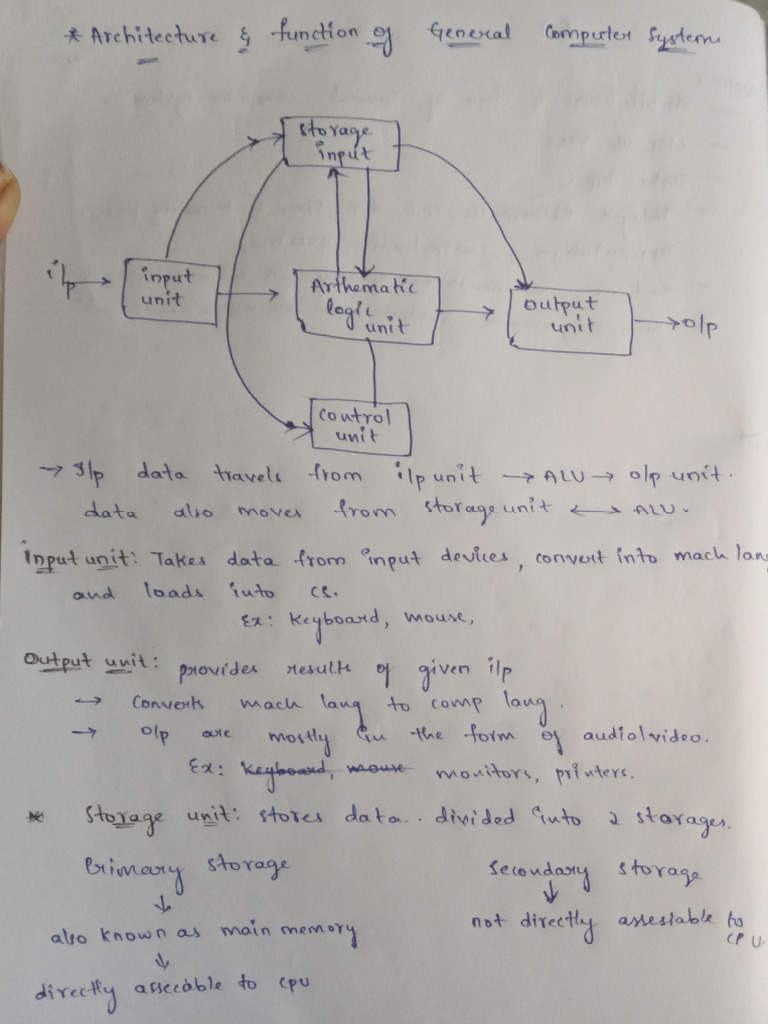 * Architecture & function of General Computer System
storage
input
i/p
input
unit
Arthematic
logic
unit
output
unit
o/p
control
unit
→ I/p data travels from i/p unit → ALU → o/p unit.
data also moves from storage unit ↔ ALU.
Input unit: Takes data from input devices, convert into mach lang
and loads into cs.
Ex: keyboard, mouse,
Output unit: provides results of given i/p
→ Converts mach lang to comp lang.
→ o/p are mostly in the form of audio/video.
Ex: keyboard, mouse monitors, printers.
* Storage unit: stores data.. divided into 2 storages.
Primary storage
secondary storage
↓
↓
also known as main memory
not directly assesiable to
CPU.
↓
directly assecable to cpu